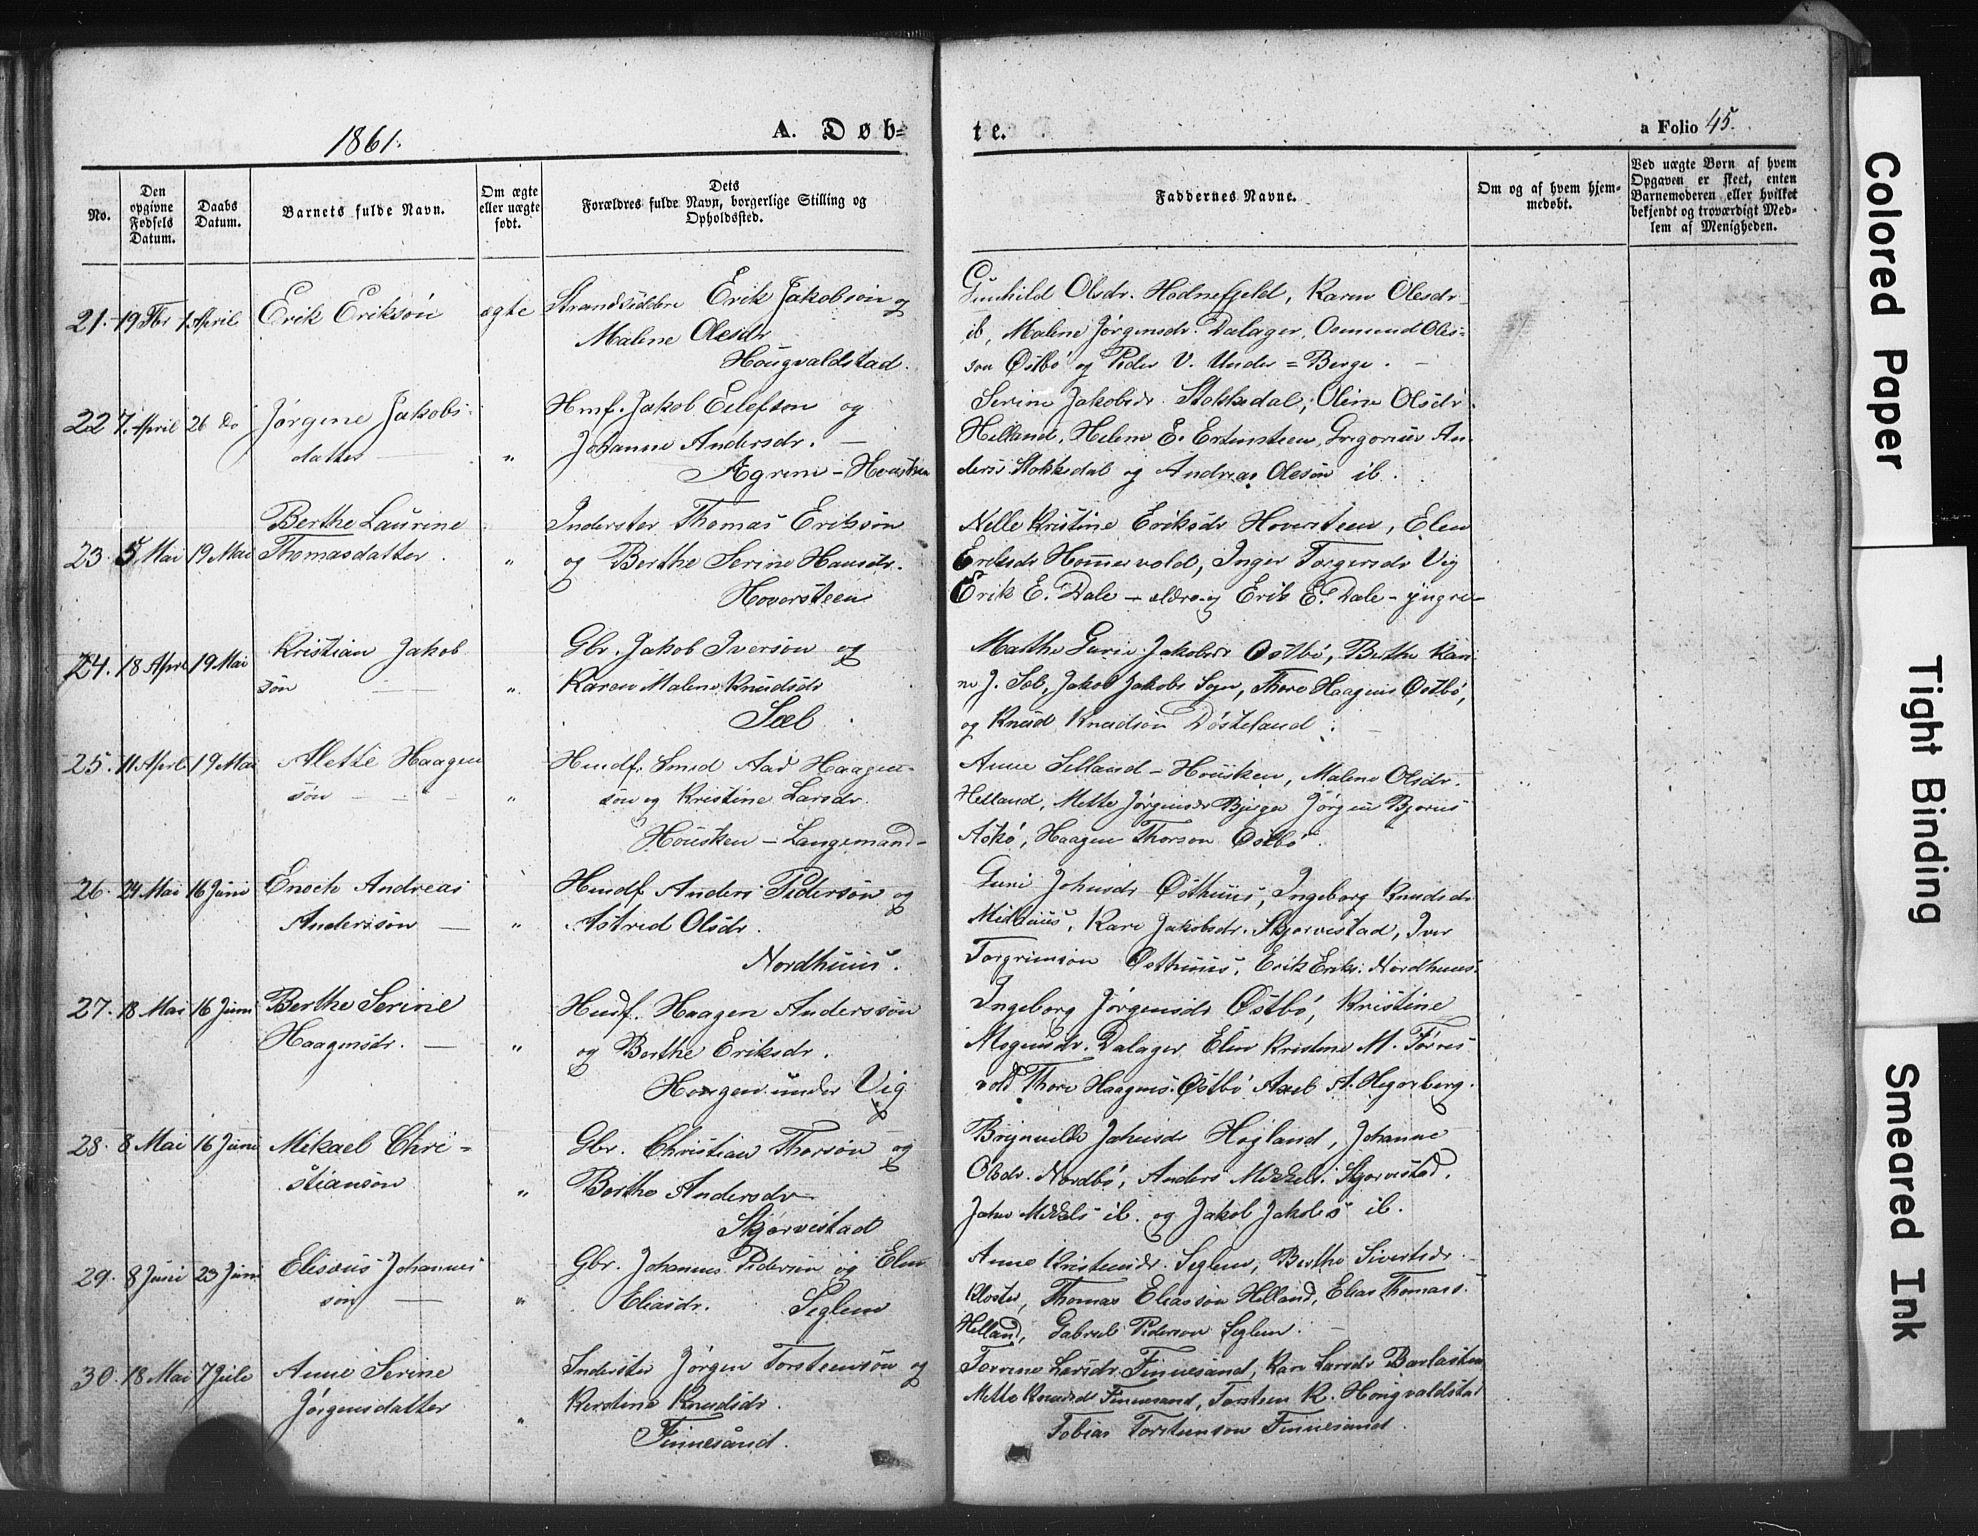 1861.
A. Døb=
te.
a Folio 45.
No.
Den opgivne Fødsels Datum.
Daabs Datum.
Barnets fulde Navn.
Om ægte eller uægte født.
Dets Forældres fulde Navn, borgerlige Stilling og Opholdssted.
Faddernes Navne.
Om og af hvem hjemmedøbt.
Ved uægte Børn af hvem
Opgaven er skeet, enten
Barnemoderen eller hvilket
bekjendt og troværdigt Med-
lem af Menigheden.
21. 19 Fbr 1 April Erik Eriksön ægte Strandsiddere Erik Jakobsön og
Malene Olesdr
Hougvaldstad.
Gunhild Olsdr. Hodnefjeld, Karen Olesdr
ib, Malene Jörgensdr. Dalager, Osmund Oles-
son Östbö og Peder V. Under=Berge.
22 7. April 26 do Jörgine Jakobs-
datter "
Hmf. Jakob Eilefson og
Johanne Andersdr.
AGrene - Housken
Serine Jakobsdr. Stokkedal, Oline Olsdr.
Helland, Helene E. Ertensteen, Gregorius An-
ders Stokkedal og Andreas Olesön ib.
23. 5 Mai 19 Mai Berthe Laurine
Thomasdatter. "
Inderster Thomas Eriksön
og Berthe Serine Hansdr.
Hoversteen
Nelle Kristine Eriksdr Hoversteen, Elen
Eriksdr Hommervold, Inger Torgersdr Vig
Erik E. Dale - ældre og Erik E. Dale - yngre
24. 18 April 19 Mai Kristian Jakob
sön "
Gbr. Jakob Iversön og
Karen Malene Knudsdr
Sæl
Marthe Gurie Jakobsdr Östbö, Berthe Kari-
ne J. Sæl, Jakob Jakobs Sogn, Thore Haagens Östbö,
og Knud Knudsön Dösteland.
25. 11 April 19 Mai Alette Haagen
sön "
Huudf. Smed Aad Haagen-
sön og Kristine Larsdr.
Housken - Langemand-
Anne Selland - Housken, Malene Olsdr.
Helland, Mette Jörgensdr Bjerga Jörgen Bjornus
Askö, Haagen Thorson Östbö.
26. 24 Mai 16 Juni Enoch Andreas
Andersön "
Huudf. Anders Pedersön og
Astrid Olsdr.
Nordhuus.
Guri Johnsdr Östhuus, Ingeborg Knudsdr
Midhuus, Kari Jakobsdr. Skjörvestad, Iver
Torgrimson Östhuus, Erik Eriks. Nordhuus.
27. 18 Mai 16 Juni Berthe Serine
Haagensdr. "
Huudf. Haagen Andersön
og Berthe Eriksdr.
Horgen under Vig
Ingeborg Jörgensdr Östbö, Kristine
Mogensdr. Dalager Elen Kristine M. Forres-
vold Thore Haagens. Östbö Axel A. Hegerberg.
28. 8 Mai 16 Juni Mikael Chri=
stiansön "
Gbr. Christian Thorsön og
Berthe Andersdr
Skjörvestad
Brynville Johnsdr Högland, Johanne
Olsdr. Nordbö, Anders Mikkels. Skjorvestad,
John Mikkels ib. og Jakob Jakobs ib.
29. 8 Juni 23 Juni Elisæus Johannes
sön "
Gbr. Johannes Pedersön og Elen
Eliasdr. Seglem
Anne Kristensdr. Seglem, Berthe Sivertsdr.
Kloster, Thomas Eliassön Helland, Elias Thomass.
Helland, Gabriel Pederson Seglem.
30. 18 Mai 7 Jule Anne Serine
Jörgensdatter "
Inderster Jörgen Torsteensön og
Kerstine Knudsdr.
Finnesand.
Torrine Larsdr. Finnesand, Kari Larsdr Barlasten
Mette Knudsdr Finnesand, Torsteen K. Hougvaldstad
Tobias Torsteenson Finnesand.
Colored Paper
Tight Binding
Smeared Ink